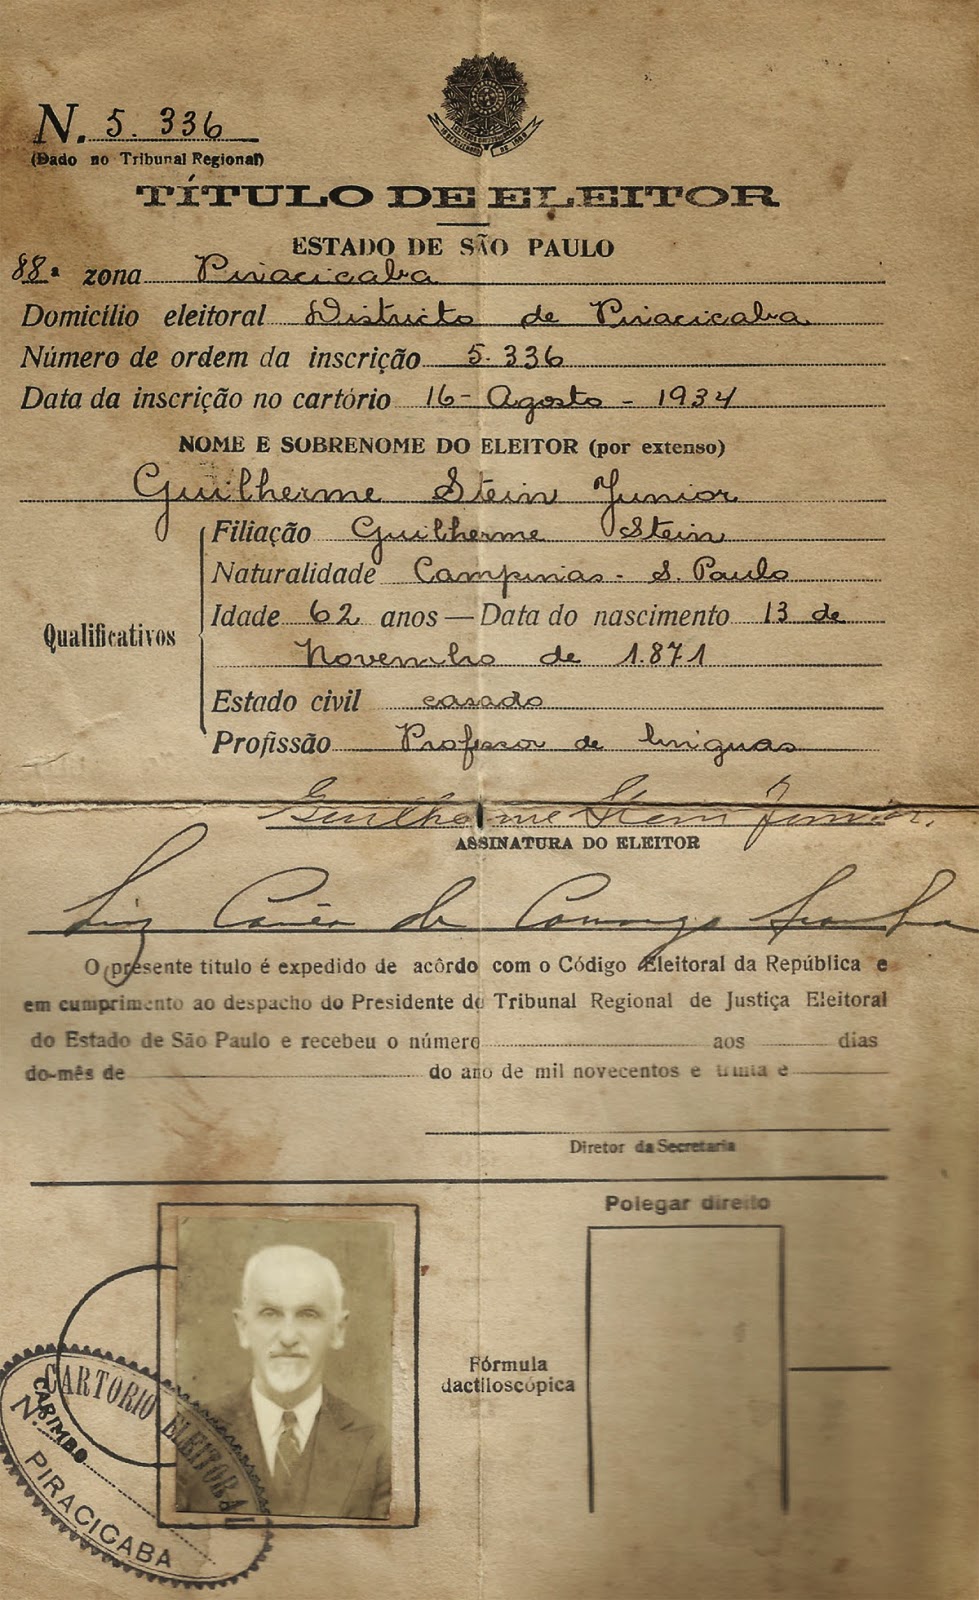 N. 5.336
(Dado no Tribunal Regional)
TÍTULO DE ELEITOR
ESTADO DE SÃO PAULO
88.ª zona Piracicaba
Domicílio eleitoral Districto de Piracicaba
Número de ordem da inscrição 5.336
Data da inscrição no cartório 16 - Agosto - 1934
NOME E SOBRENOME DO ELEITOR (por extenso)
Guilherme Stein Junior
Qualificativos
Filiação Guilherme Stein
Naturalidade Campinas - S. Paulo
Idade 62 anos — Data do nascimento 13 de
Novembro de 1.871
Estado civil casado
Profissão Professor de linguas
Guilherme Stein Junior.
ASSINATURA DO ELEITOR
Luiz de Camargo
O presente titulo é expedido de acôrdo com o Código Eleitoral da República e
em cumprimento ao despacho do Presidente do Tribunal Regional de Justiça Eleitoral
do Estado de São Paulo e recebeu o número aos dias
do mês de do ano de mil novecentos e trinta e
Diretor da Secretaria
Polegar direito
Fórmula
dactiloscópica
CARTORIO ELEITORAL
CARIMBO
N.
PIRACICABA